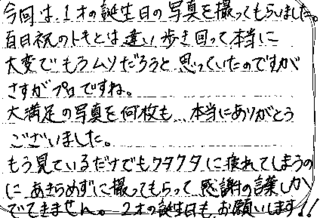 今回は、1才の誕生日の写真を撮ってもらいました。
百日祝のトキとは違い歩き回って本当に
大変でもうムリだろうと思っていたのですが
さすがプロですね。
大満足の写真を何枚も、本当にありがとう
ございました。
もう見ているだけでもクタクタに疲れてしまうの
に あきらめずに撮ってもらって、感謝の言葉しか
でてきません。2才の誕生日も、お願いします!!